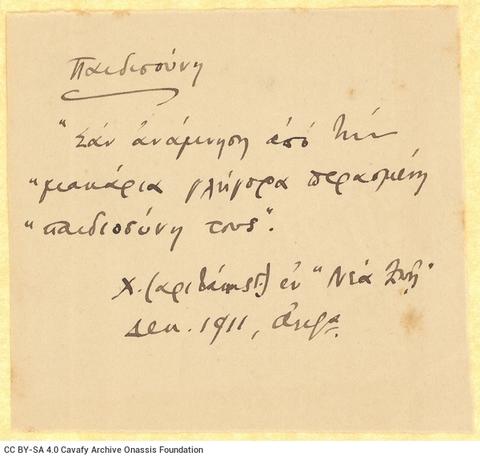 Παιδιοσύνη
"Σὰν ἀνάμνηση ἀπὸ τὴν
"μακάρια γλήγορα περασμένη
"παιδιοσύνη τους".
Χ. ( ) ἐν "Νέα Ζωῇ"
Δεκ. 1911,
CC BY-SA 4.0 Cavafy Archive Onassis Foundation